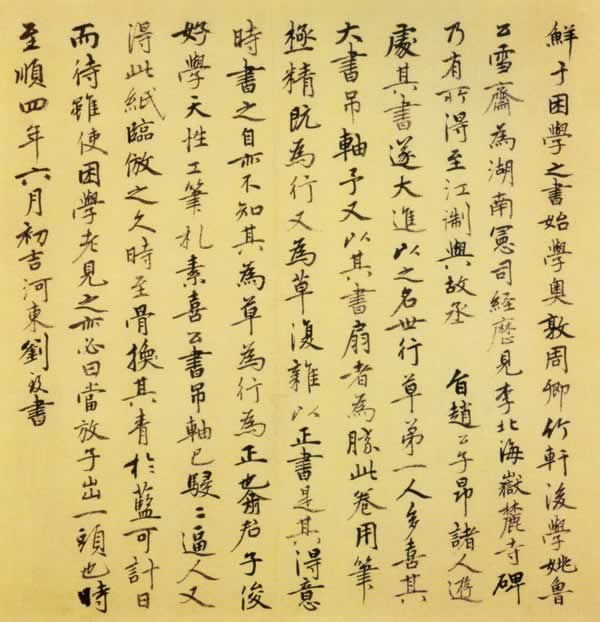 鮮于困學之書始學奧敦周卿竹軒後學姚魯
公雪齋為湖南憲司經歷見李北海嶽麓寺碑
乃有所得至江浙與故丞 自趙公子昂諸人遊
處其書遂大進以之名世行草第一人多喜其
大書吊軸予又以其書扇者為勝此卷用筆
極精既為行又為草復雜以正書是其得意
時書之自亦不知其為草為行為正也俞君子俊
好學天性工筆札素喜公書吊軸已駸〻逼人又
得此紙臨倣之久時至骨換其青於藍可計日
而待雖使困學老見之亦必曰當放子出一頭也時
至順四年六月初吉河東劉致書